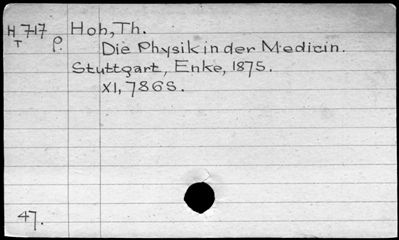 H 717 p. Hoh, Th.
T Die Physik in der Medicin.
Stuttgart, Enke, 1875.
XI, 786 S.
47.